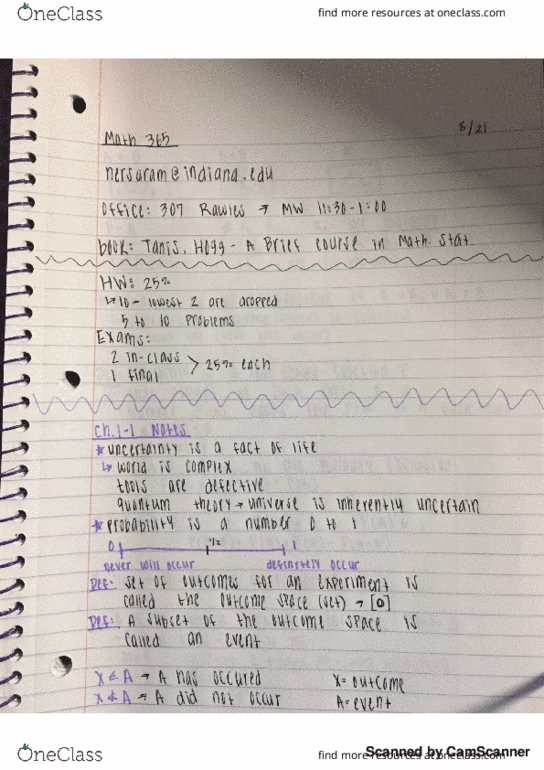 OneClass
find more resources at oneclass.com
8/21
Math 365
nersaram@indiana.edu
Office: 307 Rawles → MW 11:30-1:00
book: Tanis, Hogg - A Brief course in Math. Stat.
HW: 25%
↳ 10 - lowest 2 are dropped
5 to 10 problems
Exams:
2 in-class
1 final > 25% each
Ch. 1-1 Notes
* uncertainty is a fact of life
↳ world is complex
tools are defective
quantum theory → universe is inherently uncertain
* probability is a number 0 to 1
0 1/2 1
never will occur definitely occur
Def: set of outcomes for an experiment is
called the outcome space (set) → [O]
Def: A subset of the outcome space is
called an event
X ∈ A → A has occured X = outcome
X ∉ A → A did not occur A = event
OneClass
find more resources at oneclass.com
Scanned by CamScanner